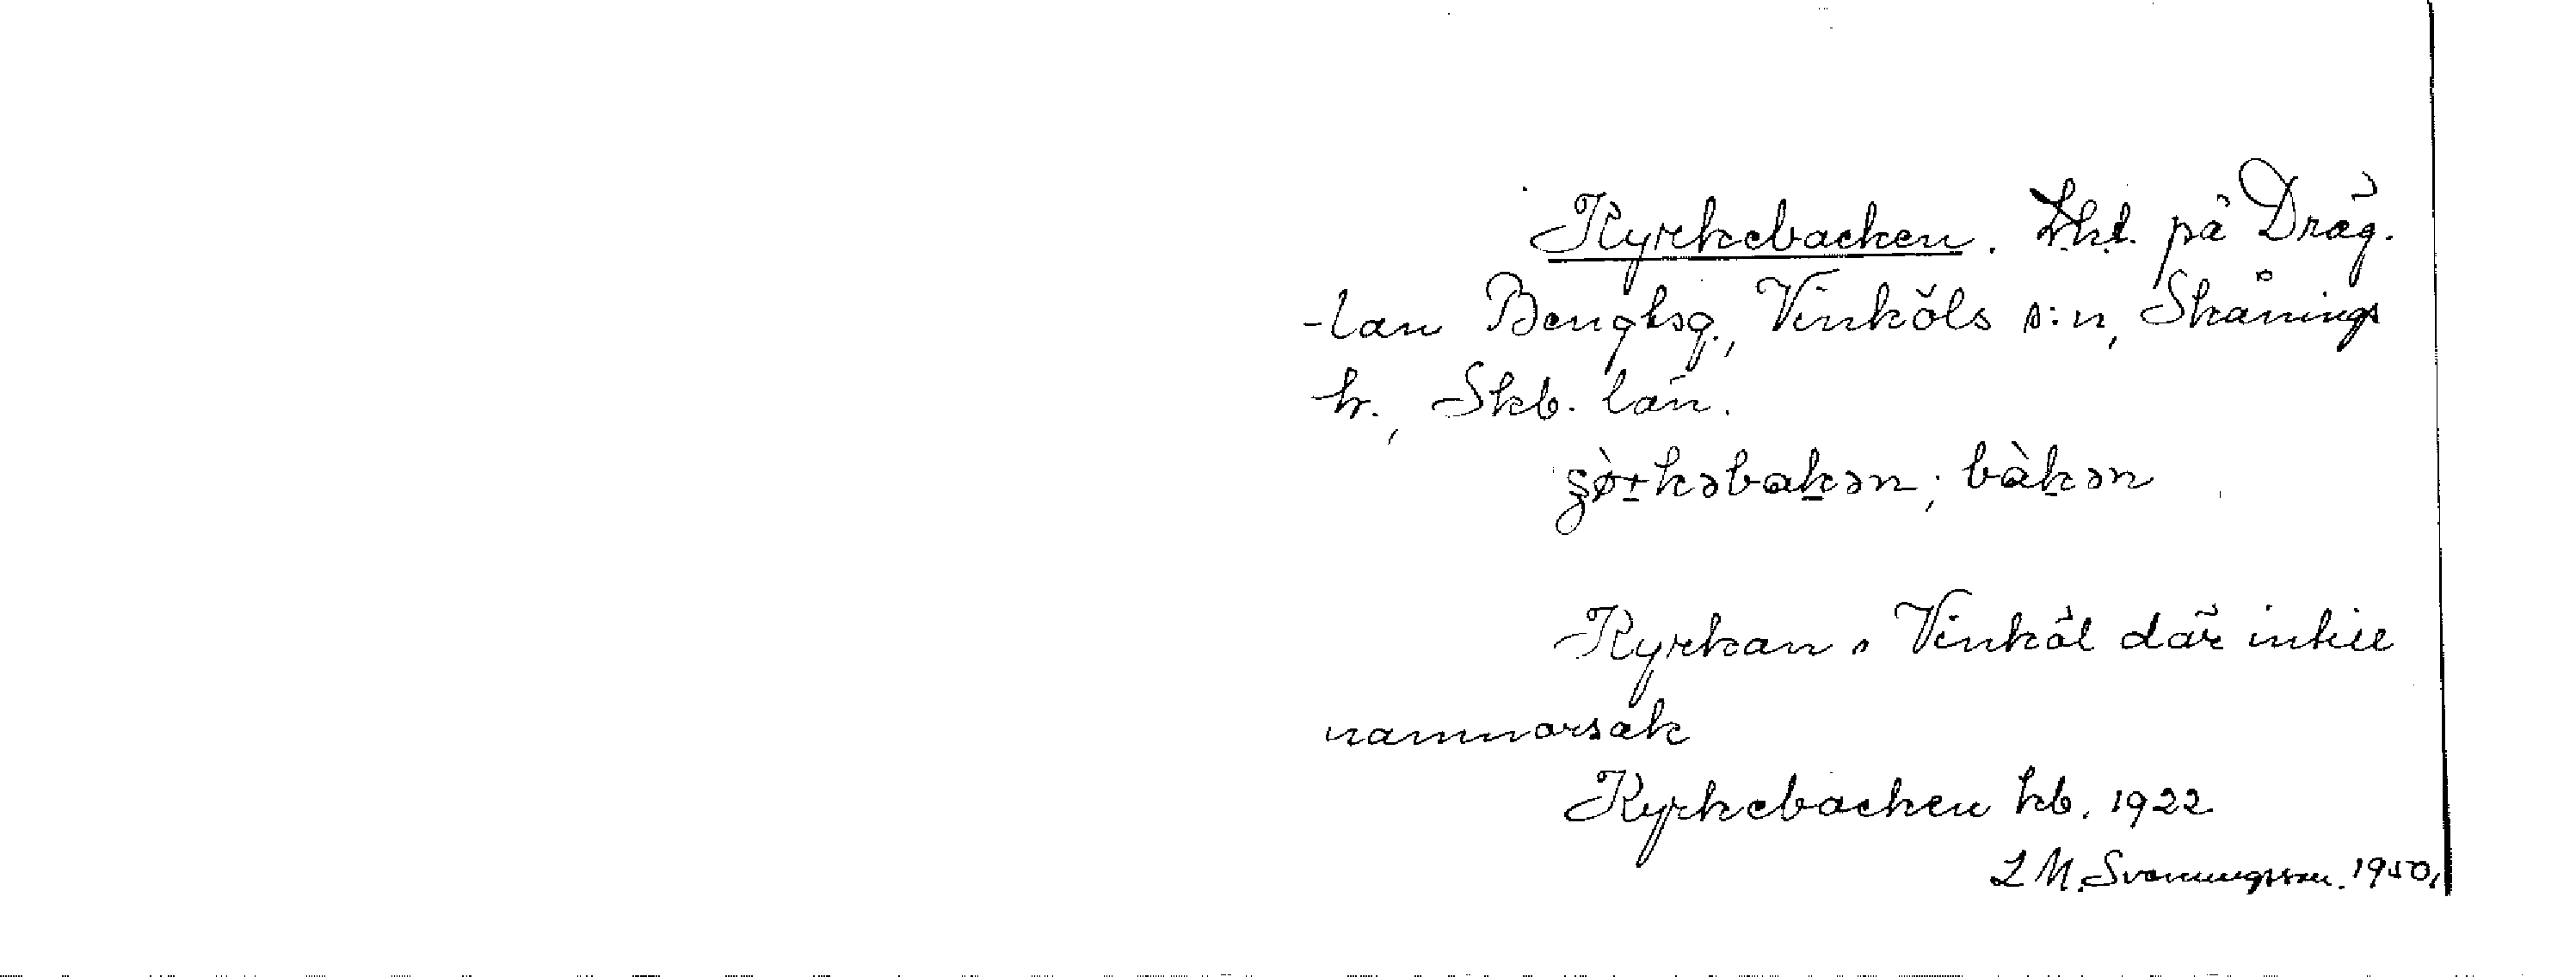 Kyrkebacken. Lht. på Dräg-
-lan Bengtsg., Vinköls s:n, Skånings
h., Skb. län.
bàkən
Kyrkan i Vinköl där intill
namnorsak
Kyrkebacken kb. 1922
L M. Svanungsson. 1950.